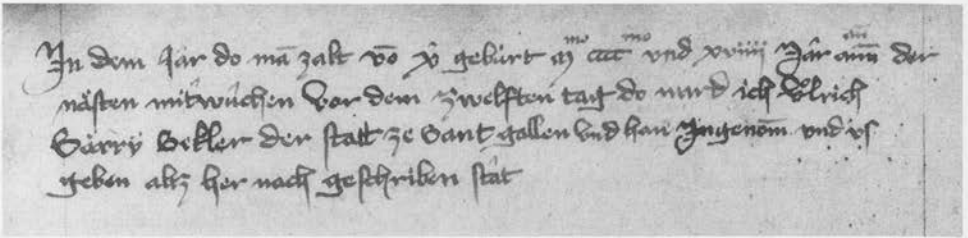 In dem Jar do mā zalt vō xp̄ gebúrt mᵐᵒ ccccᵐᵒ vnd xviiii Jâr der
nästen mitwúchen vor dem zwelften tag do ward ich Vͦlrich
Särry Sekler der statt ze Sant gallen vnd han Ingenom̄ vnd vs
geben alz her nach geschriben stât